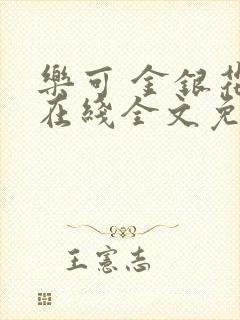 樂可 金銀花
在綫全文免
王憲志